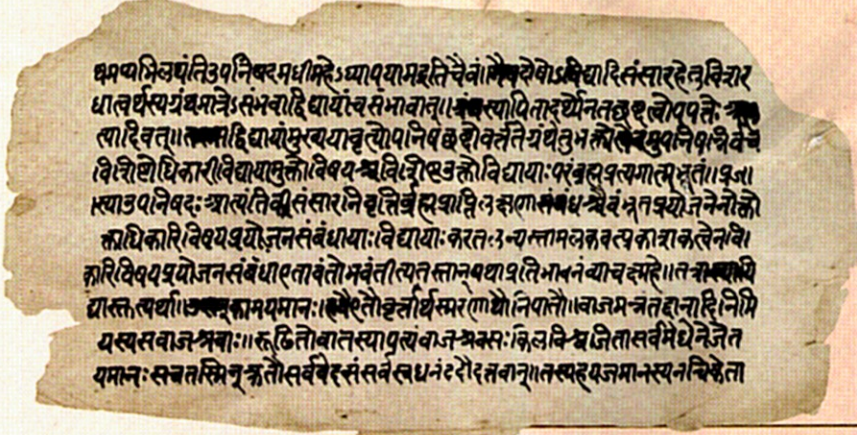 थमप्यभिलपंतिउपनिषदमधीमहेऽध्यापयामइतिचैवं॥नैषदोषोऽविद्यादिसंसारहेतुविशर
धात्वर्थस्यग्रंथमात्रेऽसंभवाद्विद्यायांचसंभावात्॥ग्रंथस्यापितादर्थ्येनतछब्दत्वोपपत्तेः
त्यादिवत्॥तस्माद्विद्यायांमुख्ययावृत्योपनिषछब्दोवर्त्ततेग्रंथेतुभक्त्येत्येवमुपनिषन्निर्वच
विशिष्टोधिकारीविद्यायामुक्तोविषयश्चविशिष्टउक्तोविद्यायाःपरंब्रह्मप्रत्यगात्मभूतं॥प्रयो
स्याउपनिषदःआत्यंतिकीसंसारनिवृत्तिर्ब्रह्मप्राप्तिलक्षणासंबंधश्चैवंभूतप्रयोजनेनोक्तो
क्ताधिकारिविषयप्रयोजनसंबंधायाःविद्यायाःकरतलन्यस्तामलकवत्प्रकाशकत्वेनवि
कारिविषयप्रयोजनसंबंधाएतावंतोभवंतीत्यतस्तान्यथाप्रतिभानंव्याचक्ष्महे॥तत्राख्यायि
द्यास्तुत्यर्था॥उशन्कामयमानः।हवैएतौवृत्तार्थस्मरणार्थौनिपातौ॥वाजमन्नंतद्दानादिनिमि
यस्यसवाजश्रवाः॥रूढितोवातस्यापत्यंवाजश्रवसःकिलविश्वजितासर्वमेधेनेजेत
यमानःसतस्मिन्क्रतौसर्ववेदसंसर्वस्वधनंददौदत्तवान्॥तस्यहयजमानस्यनचिकेता